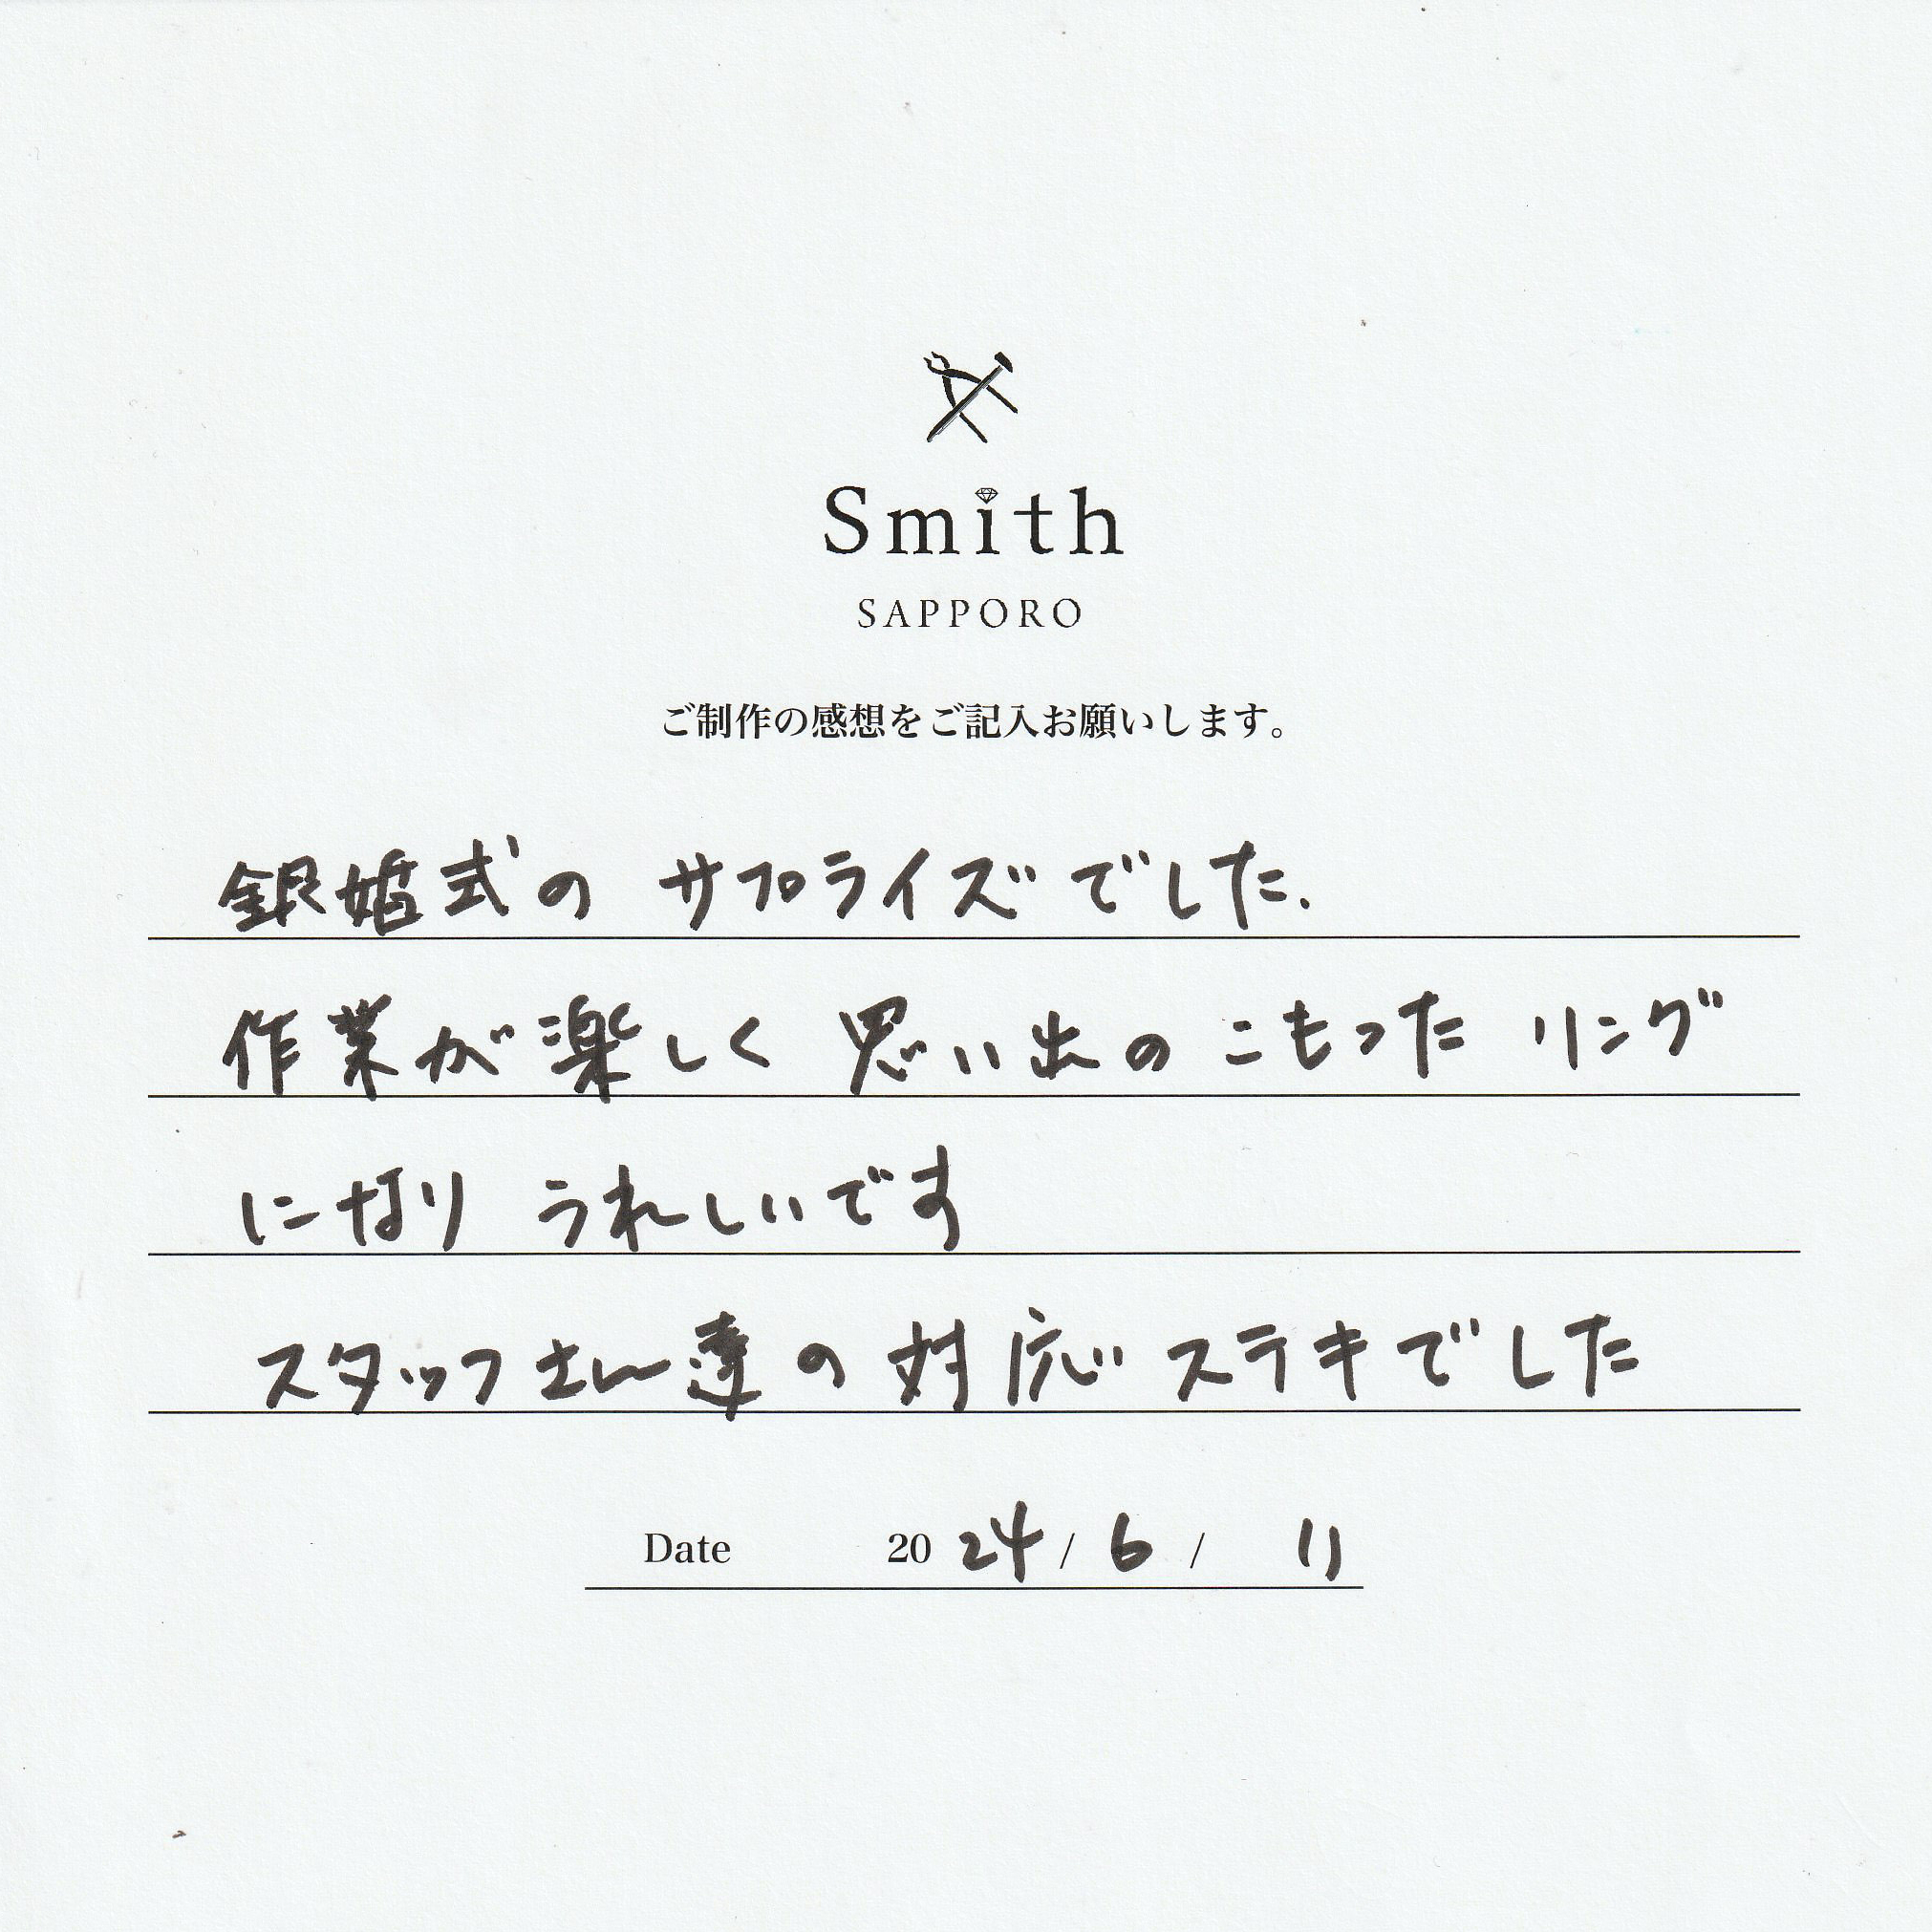 Smith
SAPPORO
ご制作の感想をご記入お願いします。
銀婚式の サプライズでした.
作業が楽しく 思い出の こもった リング
になり うれしいです
スタッフさん達の 対応 ステキでした
Date 20 24 / 6 / 11